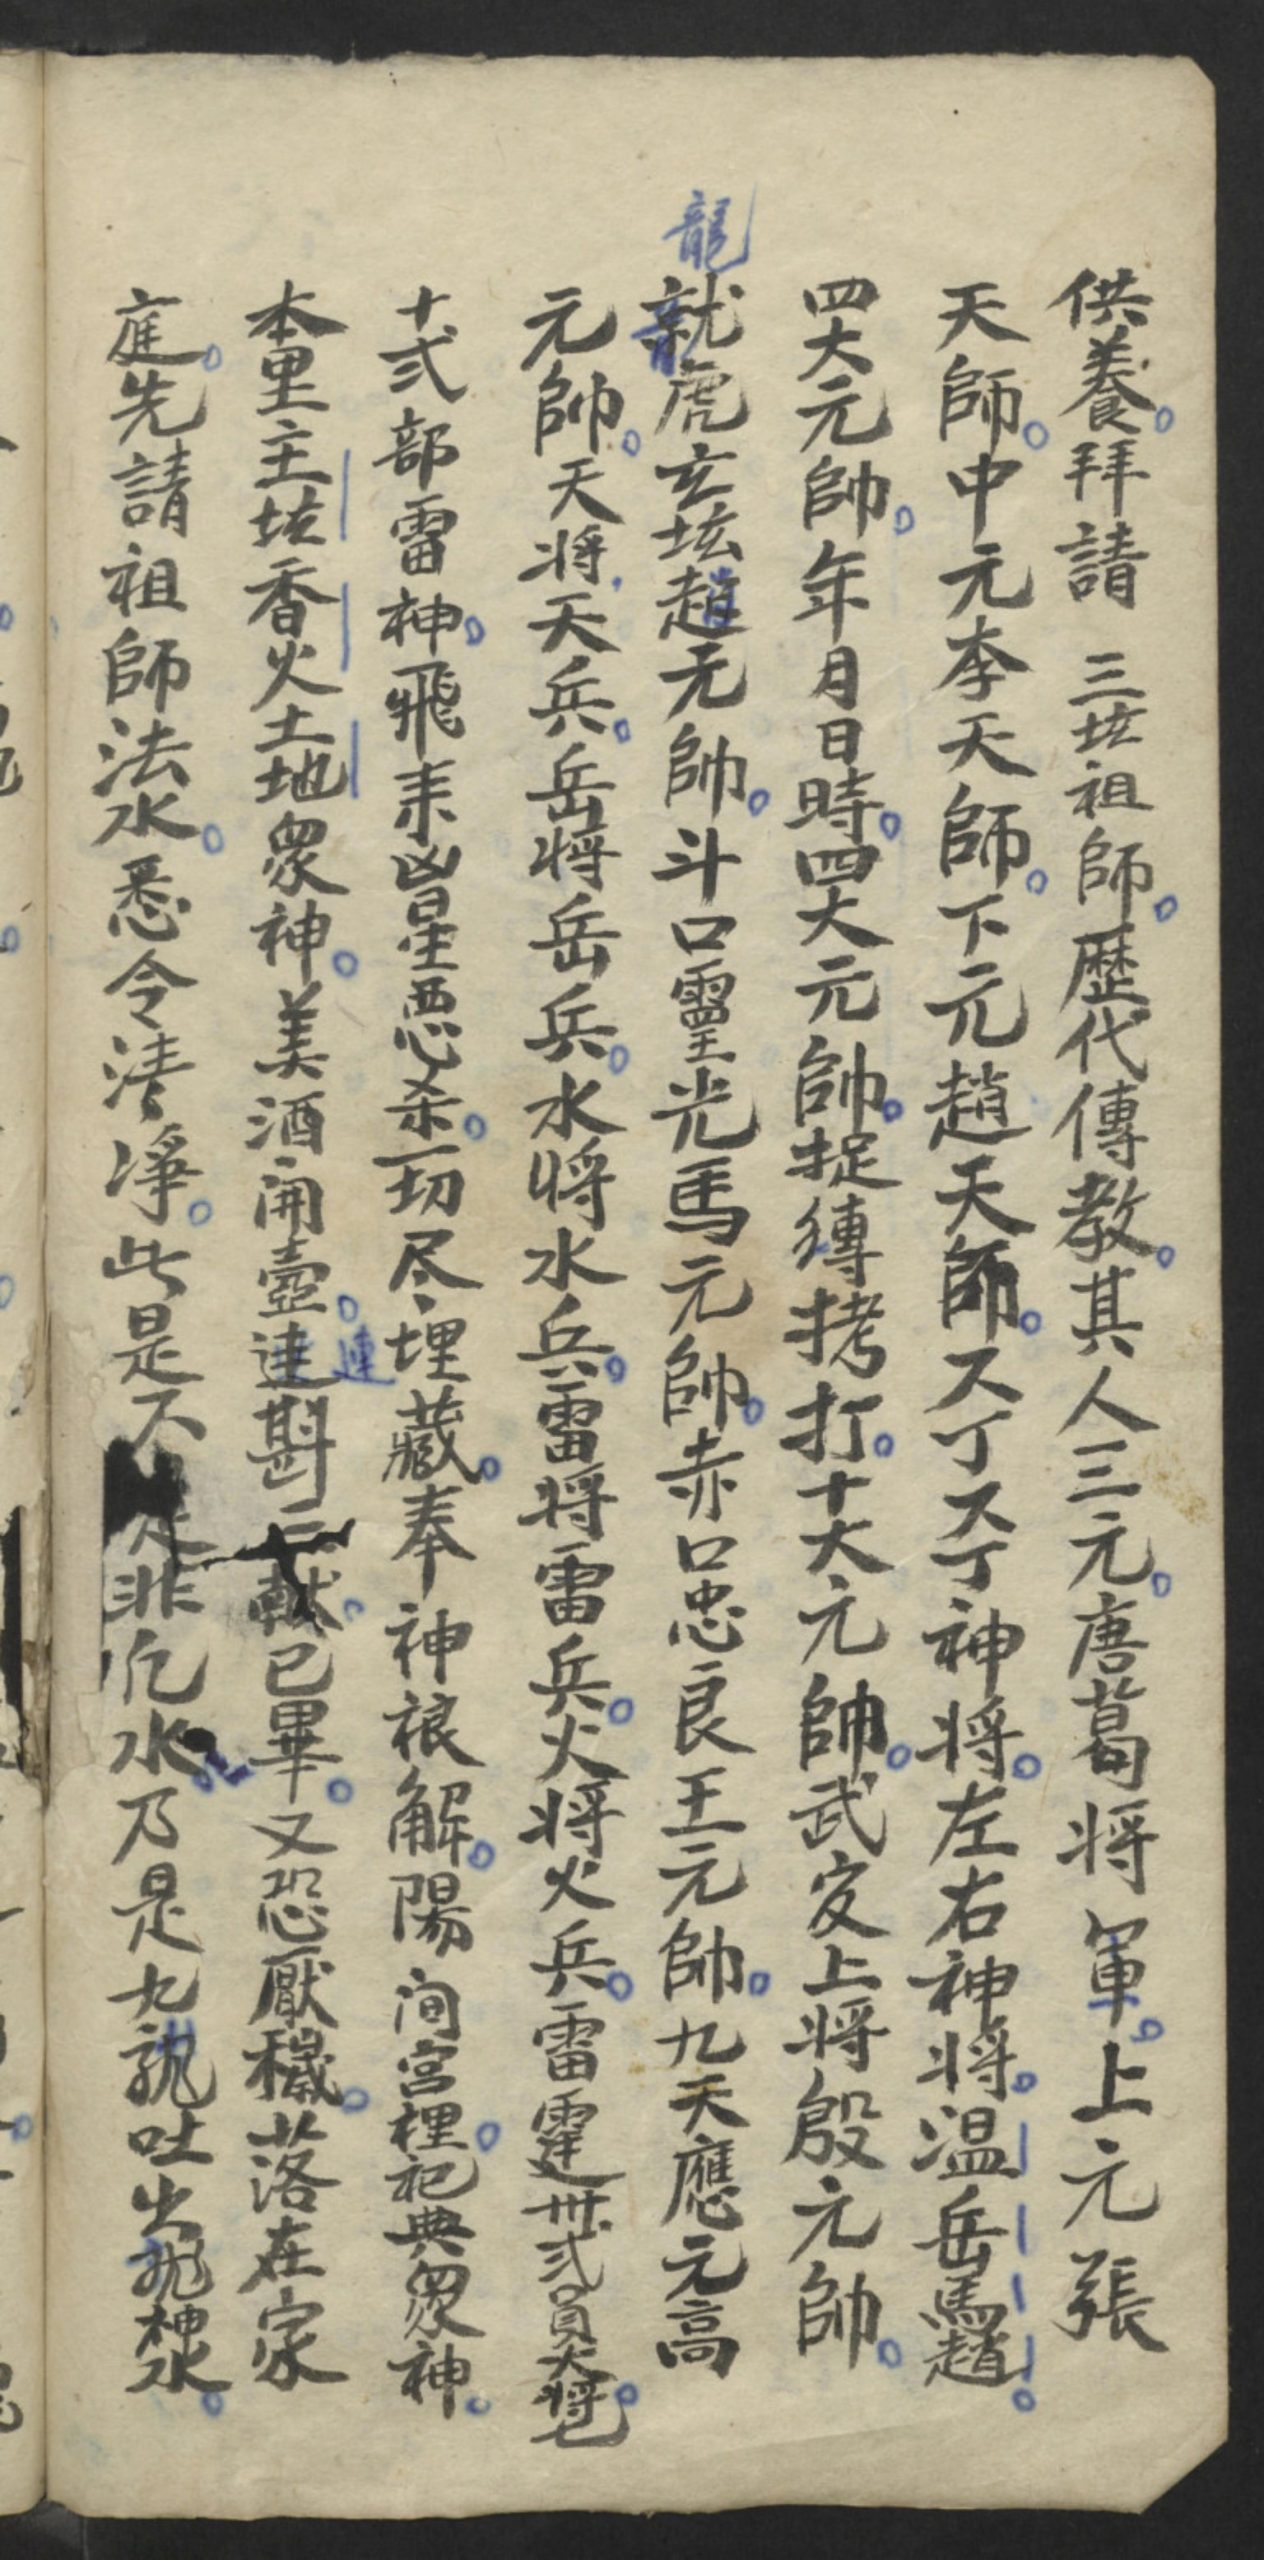 供養。拜請　三坛祖師。歷代傳教。其人三元。唐葛将軍。上元張
天師。中元李天師。下元趙天師。六丁六丁神将。左右神将。温岳馬趙。
四大元帥。年月日時。四大元帥。捉縛拷打。十大元帥。武安上将殷元帥。
龍
就虎玄坛趙元帥。斗口靈光馬元帥。赤口忠良王元帥。九天應元高
元帥。天将天兵。岳将岳兵。水将水兵。雷将雷兵。火将火兵。雷霆卅弍員天将。七
十弍部雷神。飛來凶星惡杀。一切尽埋藏。奉神禳解。陽间宮裡。祀典眾神。
本里主坛香火土地眾神。美酒開壺。連斟三献。已畢。又恐厭穢。落在家
連
庭。先請祖師法水。悉令清凈。此是不是非凡水。乃是九龍吐出龍神水。